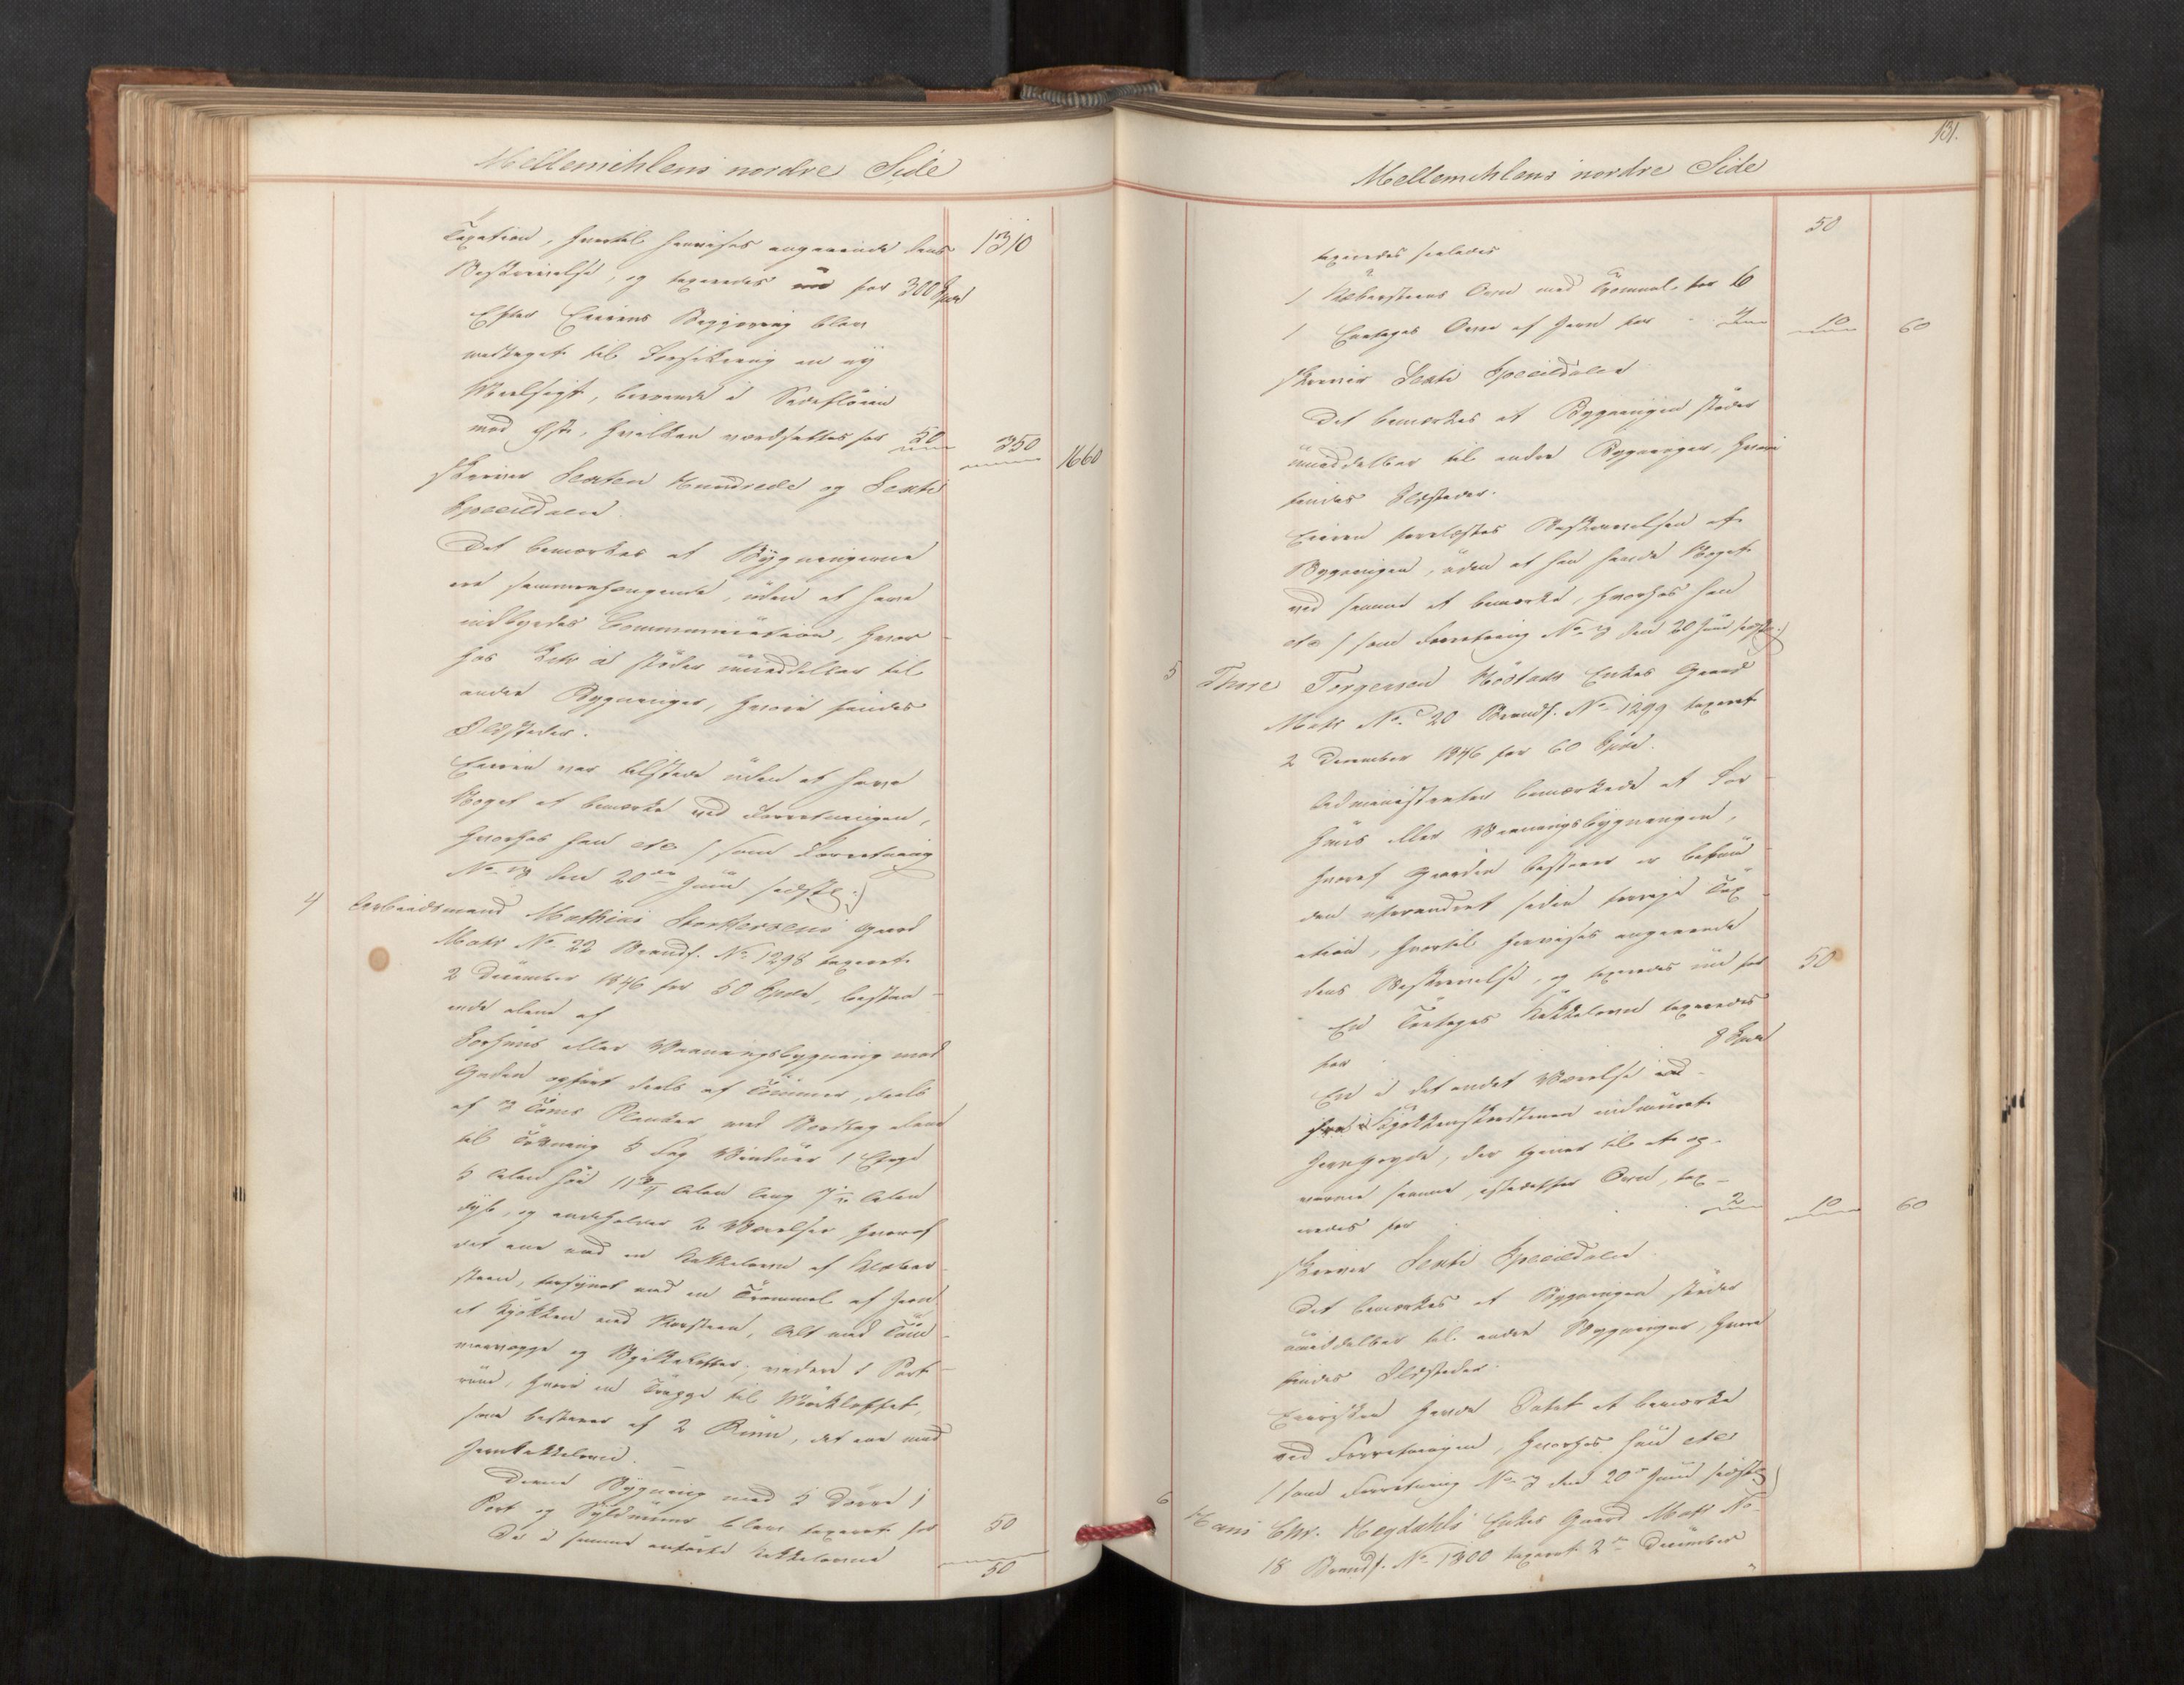 Mellemihlens nordre Side
Taxation, hvortil henvises angaaende dens 1310
Beskrivelse, og taxeredes nu for 300 Spd
Efter Eierens Begjæring blev
modtaget til Forsikring en ny
, beroende i Sidefløien
mod Øst, hvilken værdsattes for 50 350 1660
skriver Sexten Hundrede og Sexti
Speciedaler
Det bemærkes at Bygningerne
ere sammenhængende, uden at have
indbyrdes Communication, hvor-
hos støder umiddelbar til
andre Bygninger, hvori findes
Ildsteder.
Eieren var tilstede uden at have
Noget at bemærke ved Forretningen,
hvorhos han etc (som Forretning
No 3 den 20de Juni sidste.)
4 Arbeidsmand Mathias Storkersens Gaard
Matr No 22 Brandf. No 1298 taxeret
2 December 1846 for 50 Spd, bestaa-
ende alene af
Forhuus eller Vaaningsbygning mod
Gaden opført deels af Tømmer, deels
af 3 Toms Planker med Bordtag
til Tækning 5 Fag Vinduer 1 Etage
5 Alen høi 11 3/4 Alen lang 7 1/2 Alen
dyb, og indeholder 2 Værelser hvoraf
det ene med en Kakkelovn af Kleber-
steen, forsynet med en Trommel af Jern
et Kjøkken med Skorsteen, Alt med Tøm-
mervægge og Bjelkelofter, videre 1 Port-
rum, hvori en Trappe til Mørkloftet,
som bestaaer af 2 Rum, det ene med
Jernkakkelovn.
Denne Bygning med 5 Dørre 1
Port og Syldmuur blev taxeret for 50
De i samme anførte Kakkelovne
50
131.
Mellemihlens nordre Side
50
taxeredes saaledes
1 Klebersteens Ovn med Trommel, for 6
1 Etages Ovn af Jern for 4 10 60
skriver Sexti Speciedaler
Det bemærkes at Bygningen støder
umiddelbar til andre Bygninger, hvori
findes Ildsteder.
Eieren forelæstes Beskrivelsen af
Bygningen, uden at han havde Noget
ved samme at bemærke, hvorhos han
etc (som Forretning No 3 den 20 Juni sidste.)
5 Thore Torgersen Høstads Enkes Gaard
Matr No 20 Brandf. No 1299 taxeret
2 December 1846 for 60 Spd.
Administrator bemærkede at For-
huus eller Vaaningsbygningen,
hvoraf Gaarden bestaaer er befun-
den uforandret siden forrige Tax-
ation, hvortil henvises angaaende
dens Beskrivelse, og taxeredes nu for 50
En Etages Kakkelovn taxeredes
for 8 Spd
En i det andet Værelse
fra Kjøkkenskorstenen indmuret
Jerngryde, der tjener til at op-
varme samme, istedetfor Ovn, tax-
eredes for 2 10 60
skriver Sexti Speciedaler.
Det bemærkes at Bygningen støder
umiddelbar til andre Bygninger, hvori
findes Ildsteder.
Eiersken havde Intet at bemærke
ved Forretningen, hvorhos hun etc
(som Forretning No 3 den 20de Juni sidste)
6 Hans Chr. Hegdahls Enkes Gaard Matr No
18 Brandf. No 1300 taxeret 2den December